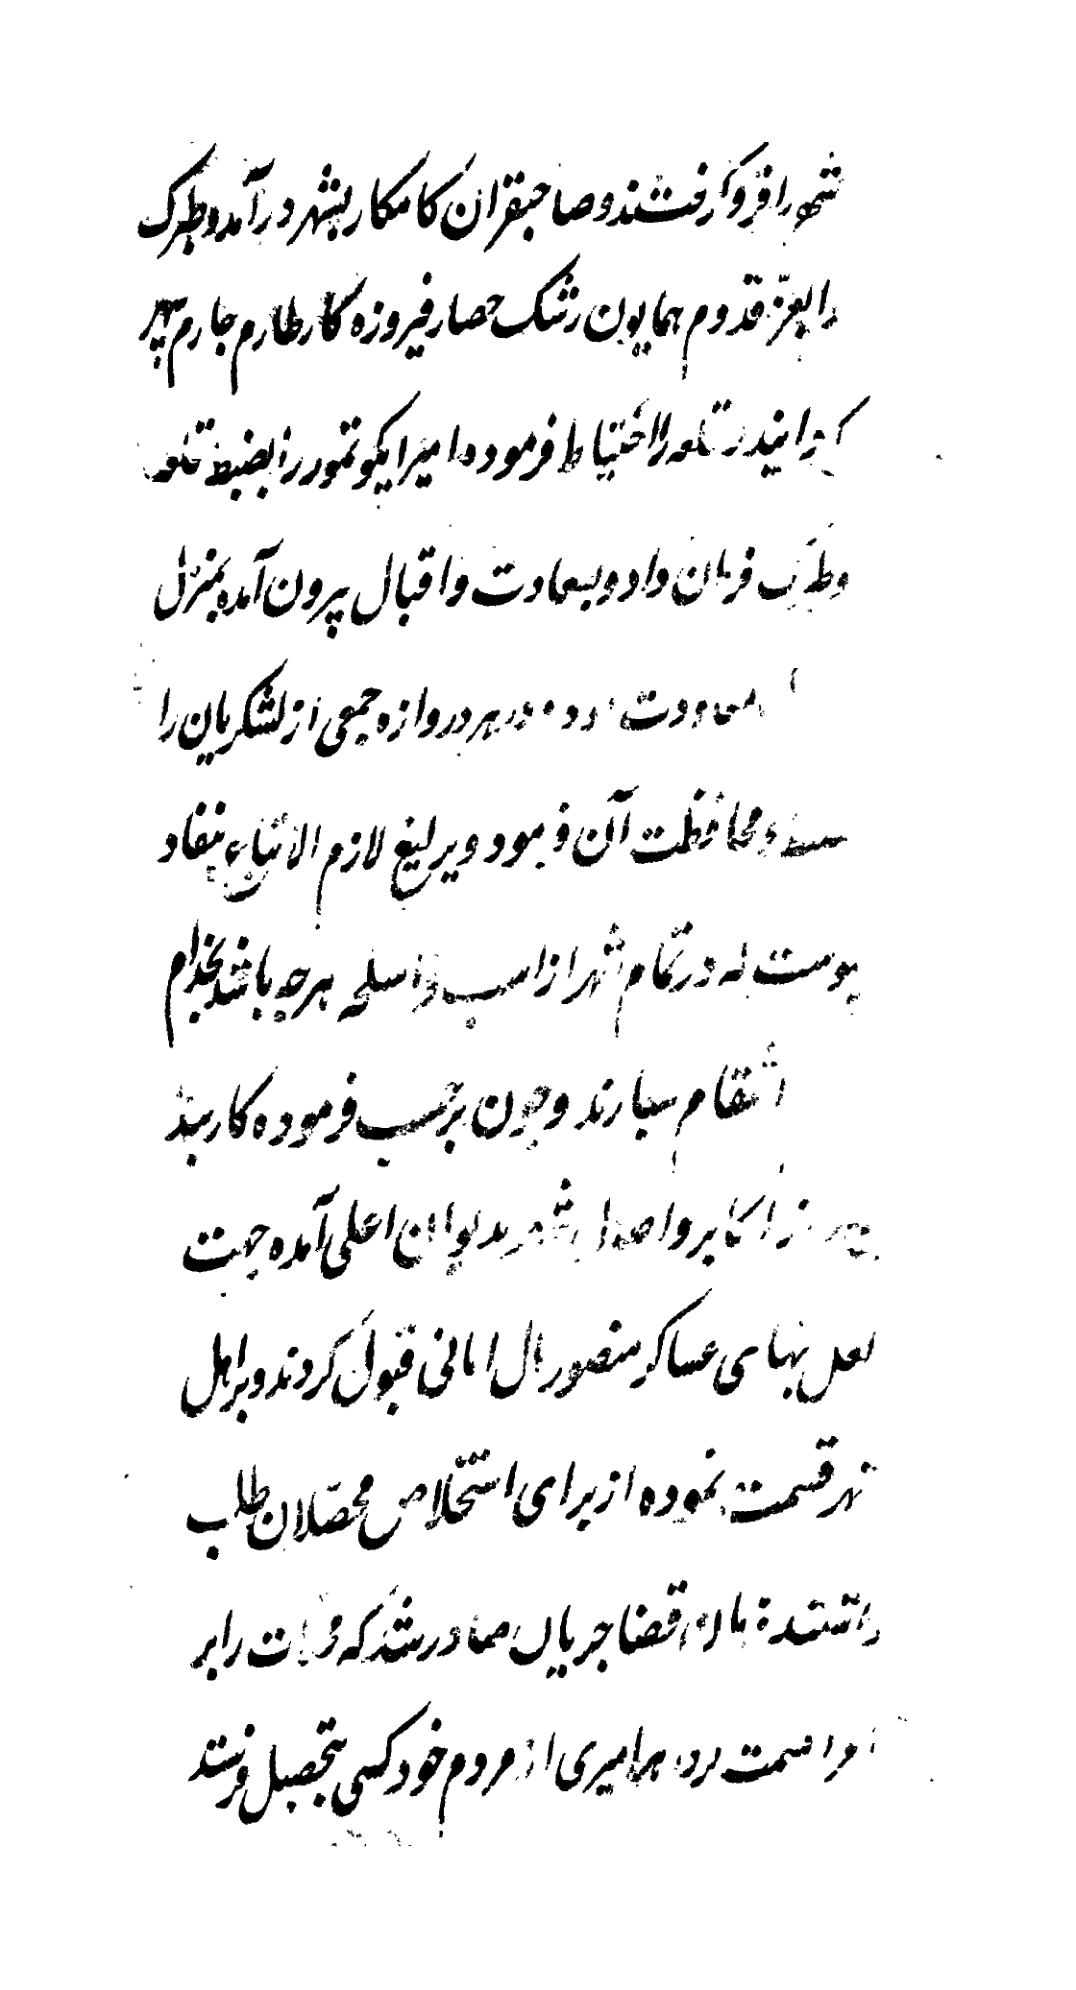 شهر را فرو گرفتند و صاحبقران کامکار بشهر درآمد و طبرک
را بعز قدوم همایون رشک حصار فیروزه کار طارم چارم سپهر
گردانیدند قلعه را احتیاط فرموده امیر ایکو تمور را بضبط قلعه
وطبرک فرمان داد و بسعادت و اقبال بیرون آمده بمنزل
معاودت در هر دروازه جمعی از لشکریان را
و محافظت آن فرمود و یرلیغ لازم الاتباع بنفاد
پیوست که در تمام شهر از اسب و اسلحه هرچه باشد بخدام
انتقام سپارند و چون برحسب فرموده کاربند
اکابر و بدیوان اعلی آمده جهت
لعل بهای عساکر منصور مال امانی قبول کردند و بر اهل
شهر قسمت نموده از برای استخلاص محصلان طلب
داشتند قضا جریان صادر شد که را بر
امرا قسمت هر امیری از مردم خود کسی بتحصیل فرستد